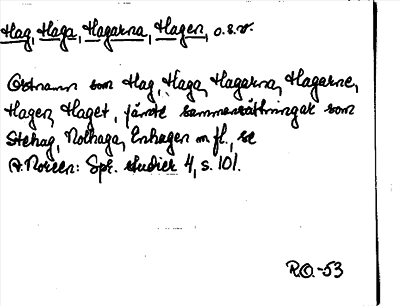 Hag, Haga, Hagarna, Hagen, o.s.v.
Ortnamn som Hag, Haga, Hagarna, Hagarne,
Hagen, Haget, jämte sammansättningar som
Stehag, Nolhaga, Enhagen m. fl., se
A. Noreen: Spr. studier 4, s. 101.
R.O.-53